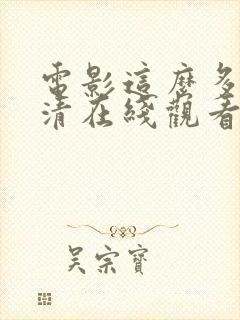 電影這麼多
清在綫觀看
吴宗寶